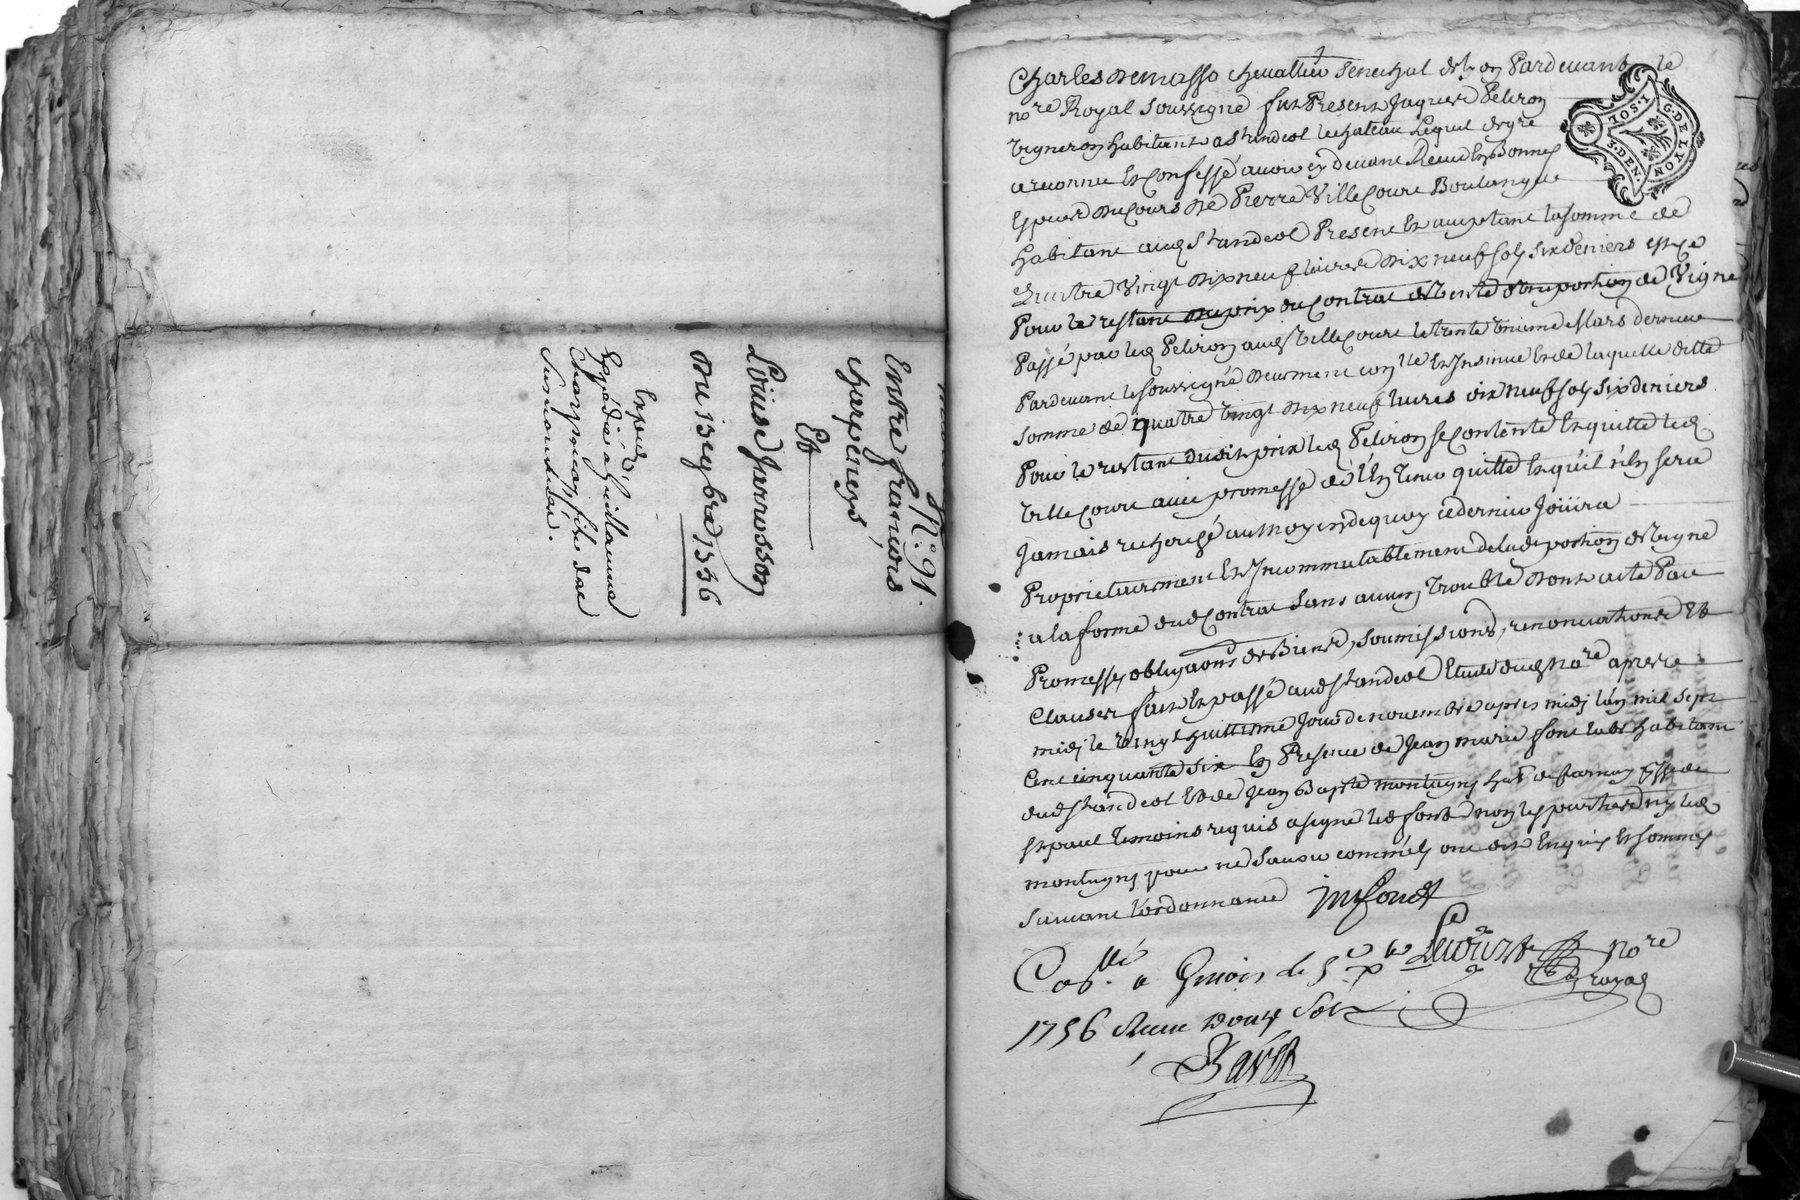 N.° 91.
Entre francois
charpeney
Et
Louise Jarrosson
Du 13e 9bre 1756
Expedié a Guillaume
Charpenay fils dud
Charles Demasso chevallier senechal de Lyon Pardevant le
nore Royal soussigné fut Present Jaques Peliron
vigneron habitant a St andeol le chateau Lequel de gré
a reconnu et confessé avoir cy devant Receu En Bonnes
Especes du cours de Pierre Villecourt Boulanger
habitant aud St andeol Present et acceptant la somme de
Quatre Vingt dix neuf livres dix neuf sols six deniers
Pour le restant du prix du contrat de vente d'une portion de Vigne
Passé par led Peliron aud Villecourt le trente unieme Mars dernier
Pardevant le soussigné deument con.lle et Insinué et de laquelle ditte
somme de quatre vingt dix neuf livres dix neuf sols six deniers
Pour le restant dudit prix led Peliron se contente et quitte led
Villecourt avec promesse de l'En tenir quitte et qu'il n'En sera
Jamais recherché au moyen de quoy ce dernier Joüira
Proprietairement et Incommutablement de lad portion de vigne
a la forme dud contrat sans aucun trouble dont acte Par
Promesses, obligaons de Biens, soumissions, renonciations et
Clauses fait et passé aud St andeol Etude dud Nore apres
midi le vingt huittieme Jour de novembre apres midi l'an mil sept
cent cinquante six En Presence de Jean marie font habitant
dud St andeol et de Jean Bapte montagny hat de farnay
St paul temoins requis a signé led font non les parties ny led
montagny pour ne sçavoir comme ils ont dit Enquis et sommés
suivant l'ordonnance
Nore
royal
Collé a Givors le
1756 Recu douze sols